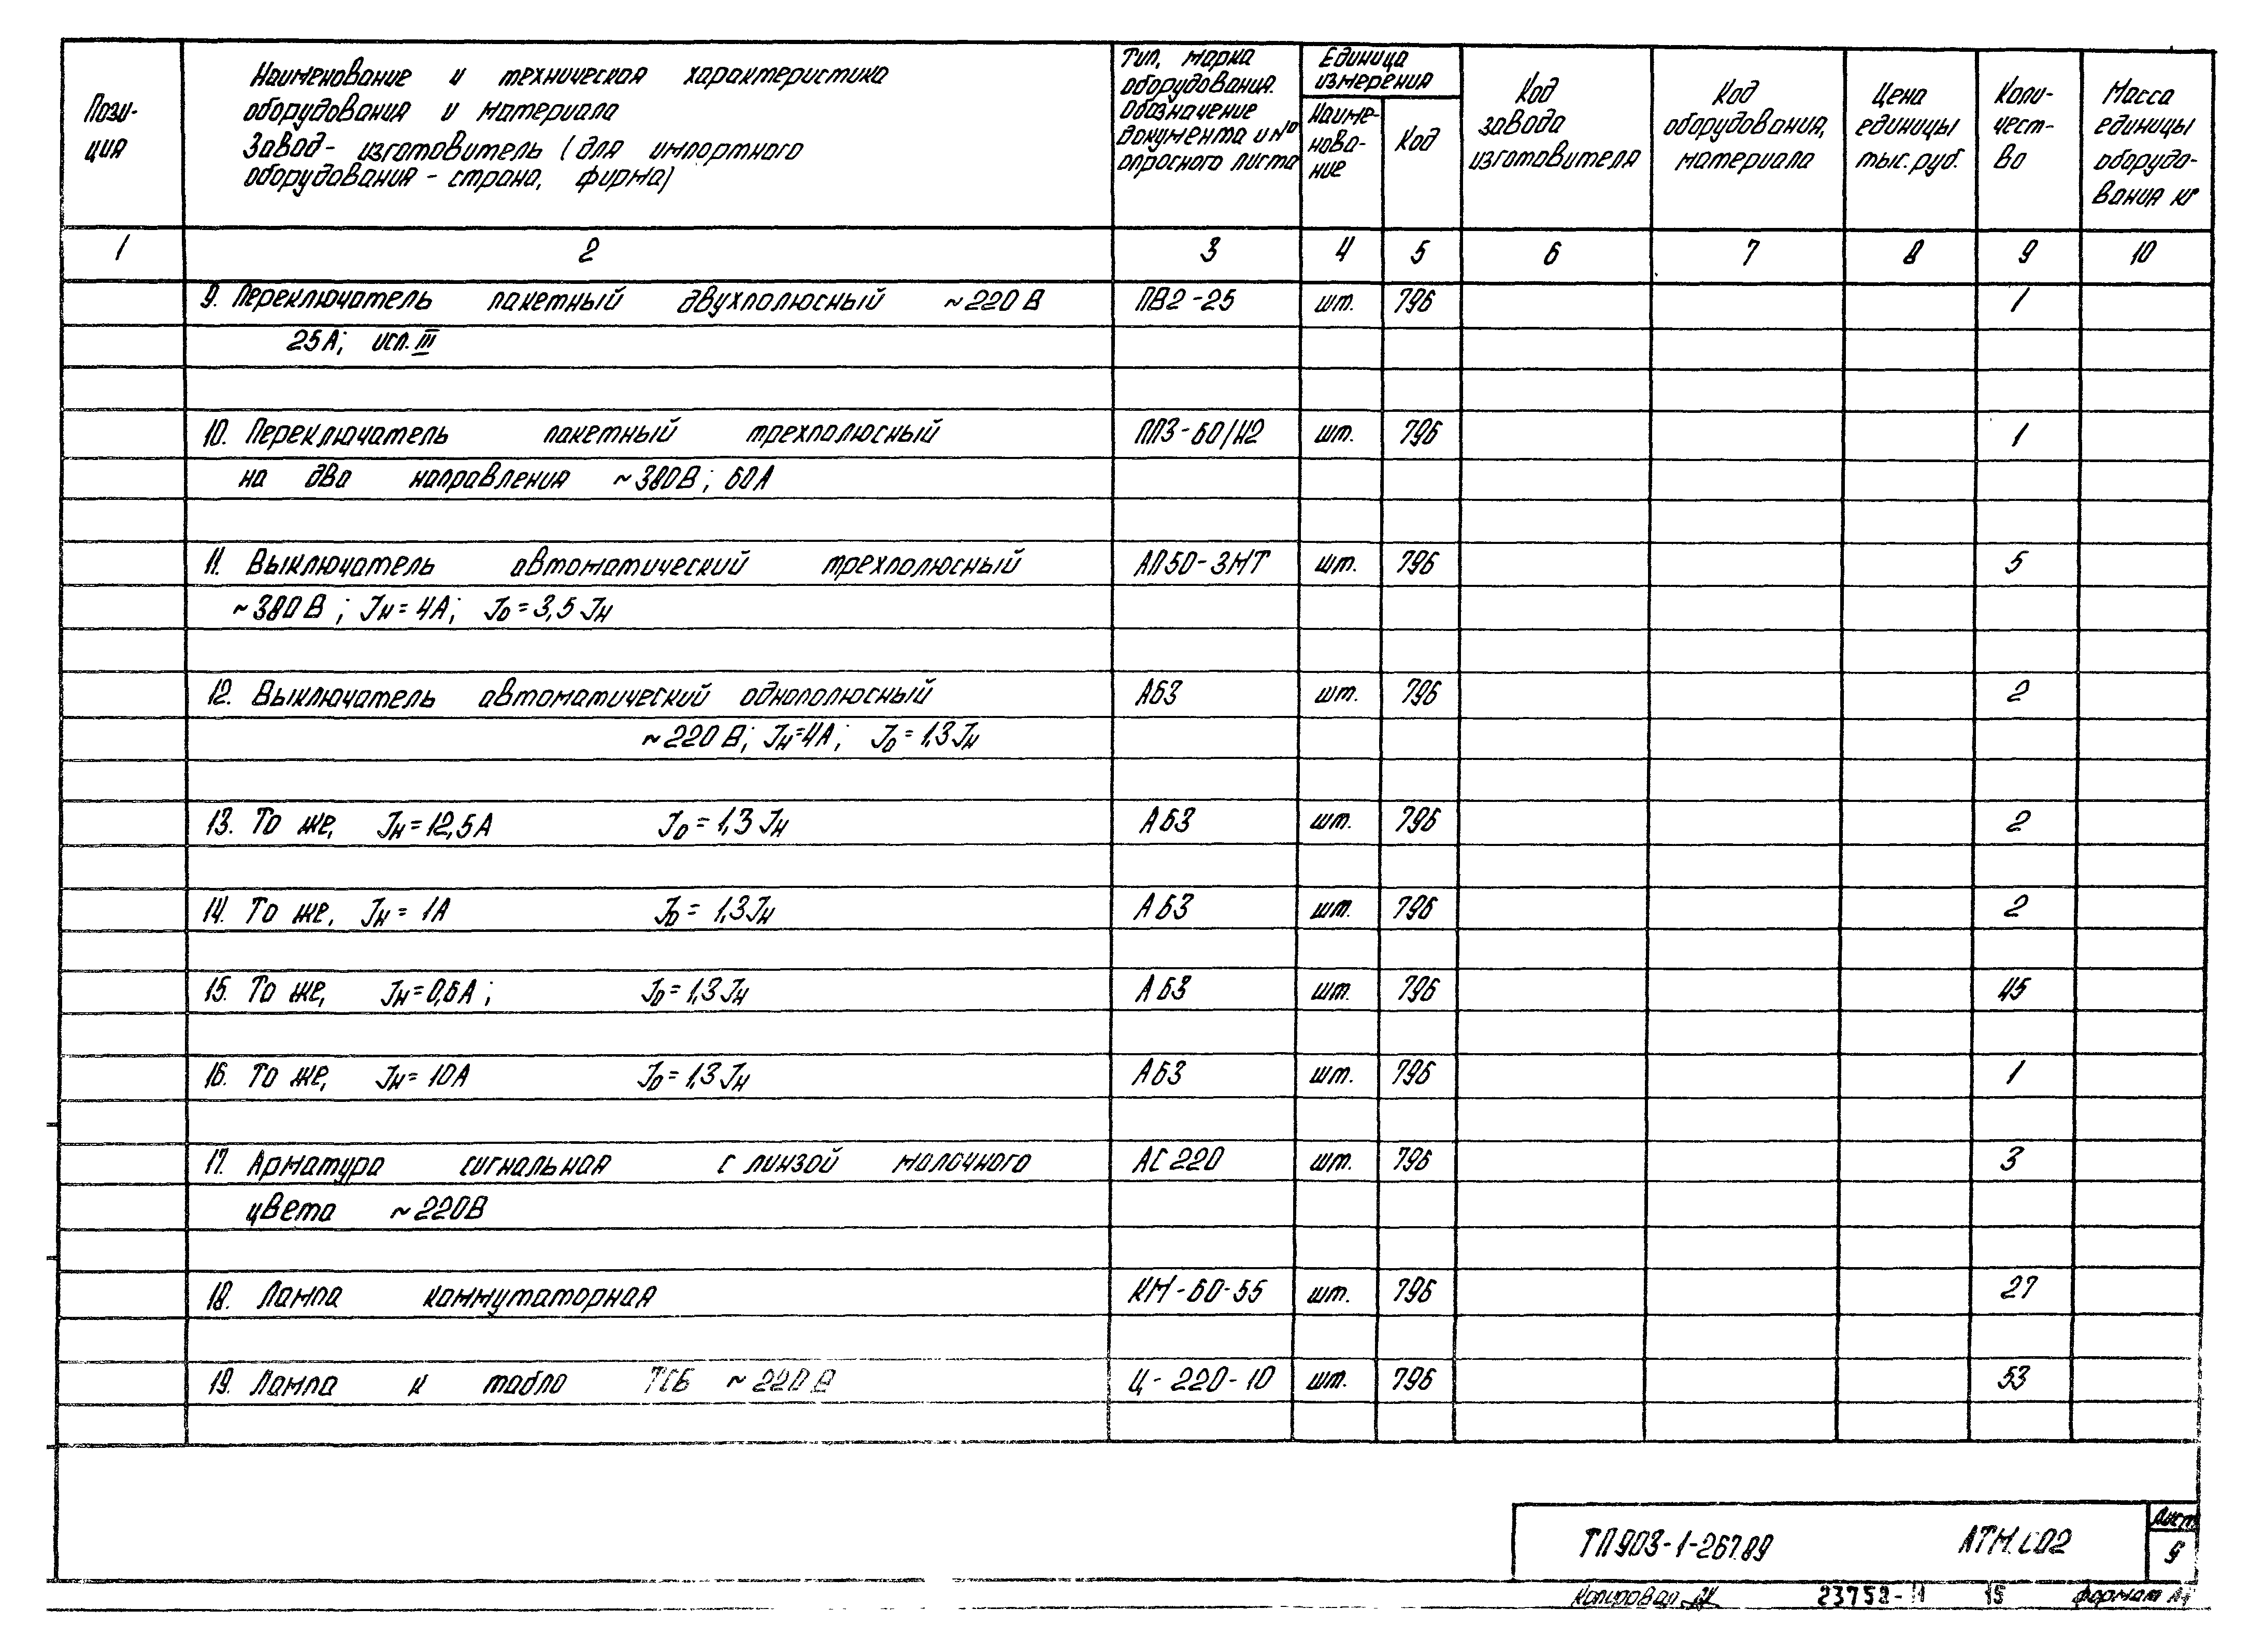 Пози-
ция
Наименование и техническая характеристика
оборудования и материала
Завод- изготовитель (для импортного
оборудования - страна, фирма)
Тип, марка
оборудования.
Обозначение
документа и №
опросного листа
Единица
измерения
Наиме-
нова-
ние
Код
Код
завода
изготовителя
Код
оборудования,
материала
Цена
единицы
тыс. руб.
Коли-
чест-
во
Масса
единицы
оборудо-
вания кг
1 2 3 4 5 6 7 8 9 10
9. Переключатель пакетный двухполюсный ~220В ПВ2-25 шт. 796 1
25А; исп. III
10. Переключатель пакетный трехполюсный ПП3-60/Н2 шт. 796 1
на два направления ~380В; 60А
11. Выключатель автоматический трехполюсный АП50-3МТ шт. 796 5
~380В; Jн=4А; Jо=3,5Jн
12. Выключатель автоматический однополюсный А63 шт. 796 2
~220В; Jн=4А; Jо=1,3Jн
13. То же, Jн=12,5А Jо=1,3Jн А63 шт. 796 2
14. То же, Jн=1А Jо=1,3Jн А63 шт. 796 2
15. То же, Jн=0,6А; Jо=1,3Jн А63 шт. 796 45
16. То же, Jн=10А Jо=1,3Jн А63 шт. 796 1
17. Арматура сигнальная с линзой молочного АС220 шт. 796 3
цвета ~220В
18. Лампа коммутаторная КМ-60-55 шт. 796 27
19. Лампа к табло ТСБ ~220В Ц-220-10 шт. 796 53
ТП903-1-267.89 АТМ.СО2
Лист
9
Копировал 23752-11 15 формат А4